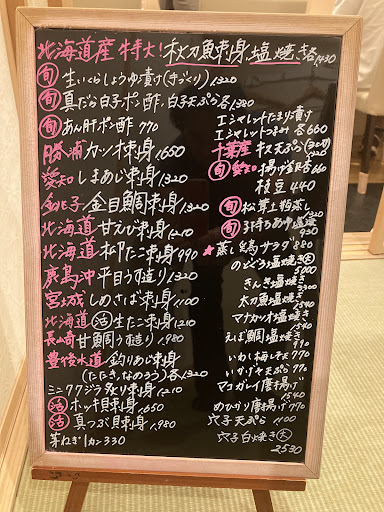 北海道産特大！秋刀魚刺身、塩焼き各1430
旬 生いくらしょうゆ漬け(手づくり)1320
旬 真だら白子ポン酢、白子天ぷら各1380
旬 あん肝ポン酢 770
勝浦 カツオ刺身1650
愛知 しまあじ刺身1320
銚子 金目鯛刺身1320
北海道 甘えび刺身1210
北海道 柳たこ刺身990
鹿島沖 平目うす造り1320
宮城 しめさば刺身1100
北海道 活 生たこ刺身1210
長崎 甘鯛うす造り1980
豊後水道 釣りあじ刺身
(たたき、なめろう)各1320
ミンク鯨ジラ炙り刺身1210
活 ホッキ貝刺身1650
活 真つぶ貝刺身1980
芽ねぎ1カン330
エシャレットたまり漬け
エシャレットつまみ 各660
千葉産 キス天ぷら
1320
旬 揚げ銀杏660
枝豆440
旬 松茸土瓶蒸し
旬 子持ちあゆ塩焼
930
★蒸し鶏サラダ 880
のどぐろ塩焼き 大
5000
きんき塩焼き
太刀魚塩焼き
1540
マナカツオ塩焼き
1540
えぼ鯛塩焼き
990
いわし梅しそ天770
いかげそ天ぷら770
マコガレイ唐揚げ
1540
めひかり唐揚げ770
穴子天ぷら 1100
穴子白焼き 大
2530